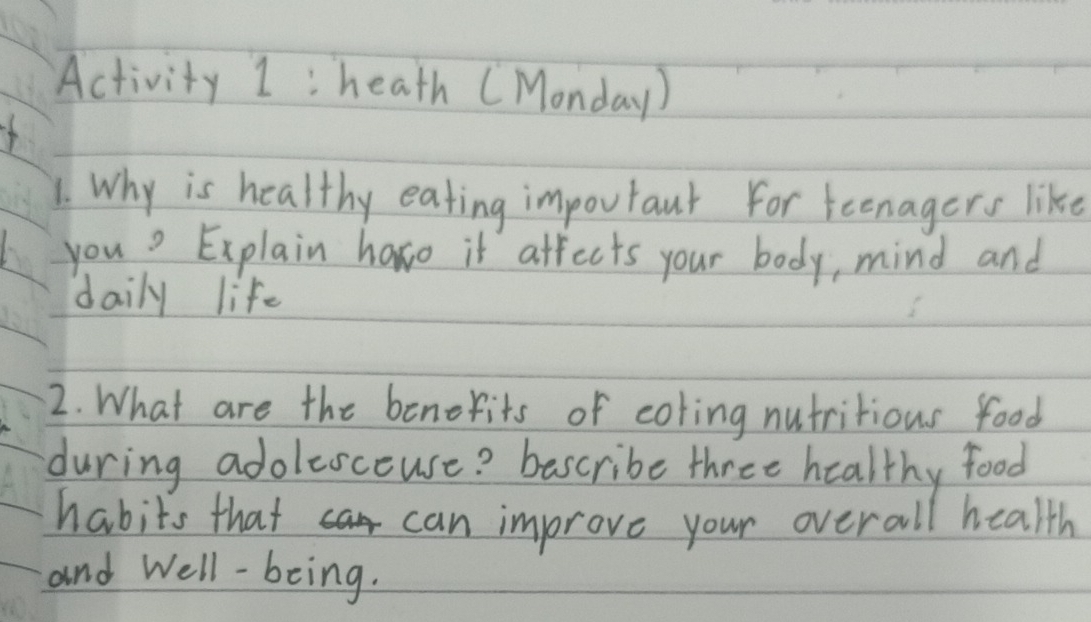 Activity 1 : heath (Monday)
1. Why is healthy eating impovtaut for teenagers like
you? Explain how it affects your body, mind and
daily life
2. What are the benefits of eoting nutritious food
during adolesceuse? bescribe three healthy food
habits that can can improve your overall health
and Well-being.